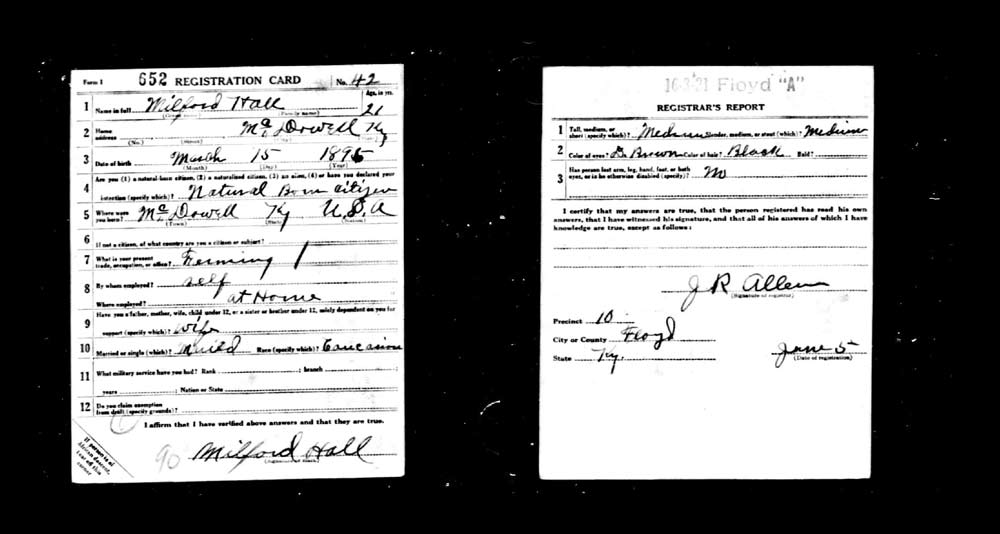 Form 1 652 REGISTRATION CARD No. 42
1 Name in full Milford Hall Age, in yrs. 21
(Given name) (Family name)
2 Home address Mc Dowell Ky
(No.) (Street) (City) (State)
3 Date of birth March 15 1895
(Month) (Day) (Year)
4 Are you (1) a natural-born citizen, (2) a naturalized citizen, (3) an alien, (4) or have you declared your
intention (specify which)? Natural Born citizen
5 Where were you born? Mc Dowell Ky U.S.A
(Town) (State) (Nation)
6 If not a citizen, of what country are you a citizen or subject?
7 What is your present trade, occupation, or office? Ferming
8 By whom employed? self
Where employed? at Home
9 Have you a father, mother, wife, child under 12, or a sister or brother under 12, solely dependent on you for
support (specify which)? wife
10 Married or single (which)? Race (specify which)? Caucasion
11 What military service have you had? Rank ; branch
years ; Nation or State
12 Do you claim exemption from draft (specify grounds)?
I affirm that I have verified above answers and that they are true.
90 Milford Hall
If person is of
African descent,
tear off this
corner
16-3-21 Floyd "A"
REGISTRAR'S REPORT
1 Tall, medium, or short (specify which)? Medium Slender, medium, or stout (which)? Medium
2 Color of eyes? D. Brown Color of hair? Black Bald?
3 Has person lost arm, leg, hand, foot, or both
eyes, or is he otherwise disabled (specify)? No
I certify that my answers are true, that the person registered has read his own
answers, that I have witnessed his signature, and that all of his answers of which I have
knowledge are true, except as follows:
J R Allen
(Signature of registrar)
Precinct 10
City or County Floyd
State Ky. June 5
(Date of registration)